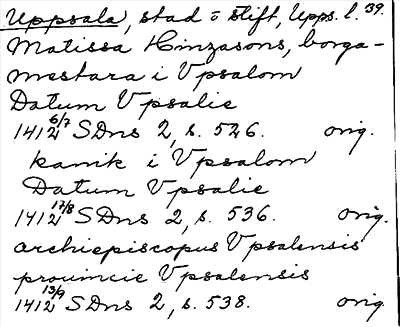 Uppsala, stad o stift, Upps. l. 39.
Matissa Hinzasons, borga-
mestara i Vpsalom
Datum Vpsalie
1412 6/7 SDns 2, s. 526. orig.
kanik i Vpsalom
Datum Vpsalie
1412 17/8 SDns 2, s. 536. orig.
archiepiscopus Vpsalensis
prouincie Vpsalensis
1412 13/9 SDns 2, s. 538. orig.